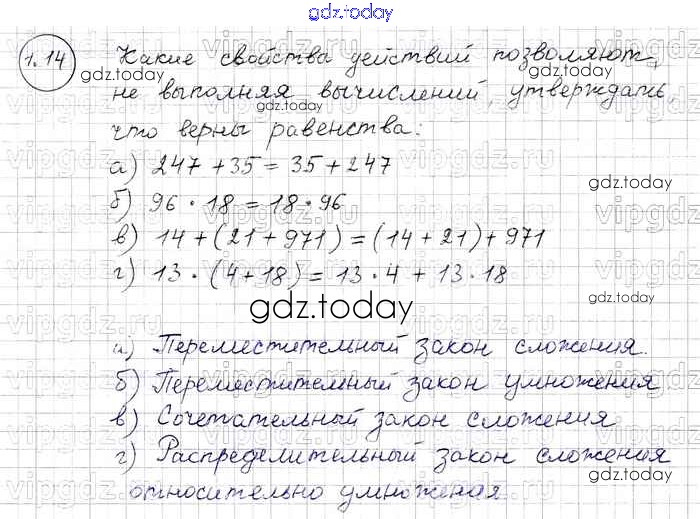 gdz.today
1.14 Какие свойства действий позволяют,
gdz.today
не выполняя вычислений, утверждать,
gdz.today
что верны равенства:
vipgdz.ru
а) 247 + 35 = 35 + 247
gdz.today
б) 96 · 18 = 18 · 96
vipgdz.ru
в) 14 + (21 + 971) = (14 + 21) + 971
г) 13 · (4 + 18) = 13 · 4 + 13 · 18
gdz.today
gdz.today
vipgdz.ru
а) Переместительный закон сложения.
б) Переместительный закон умножения
в) Сочетательный закон сложения
г) Распределительный закон сложения
gdz.today
относительно умножения.
vipgdz.ru